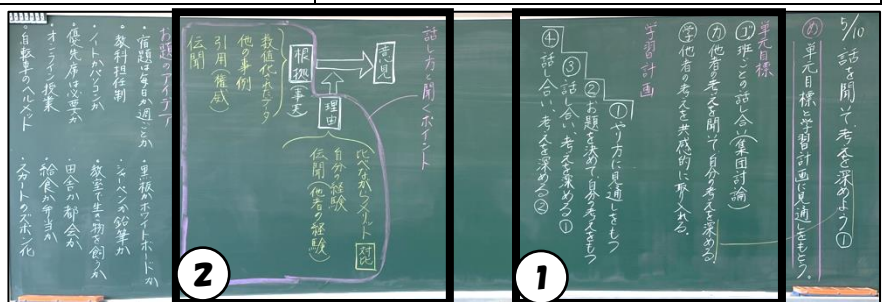 5/10 話を聞いて考えを深めよう①
め 単元目標と学習計画に見通しをもとう。
単元目標
言 班ごとの話し合い(集団討論)
力 他者の考えを聞いて、自分の考えを深める。
学 他者の考えを共感的に取り入れる。
学習計画
① やり方に見通しをもつ
② お題を決めて、自分の考えをもつ
③ 話し合い、考えを深める①
④ 話し合い、考えを深める②
1
話し方と聞くポイント
意見
理由
根拠(事実)
比べながら、メリット 対比
自分の経験
伝聞(他者の経験)
数値化されたデータ
他の事例
引用(権威)
伝聞
2
お題のアイデア
・宿題は毎日か週ごとか
・教科担任制
・ノートかパソコンか
・優先席は必要か
・オンライン授業
・自転車のヘルメット
・黒板かホワイトボードか
・シャーペンか鉛筆か
・教室で生き物を飼うか
・田舎か都会か
・給食か弁当か
・スカートのズボン化